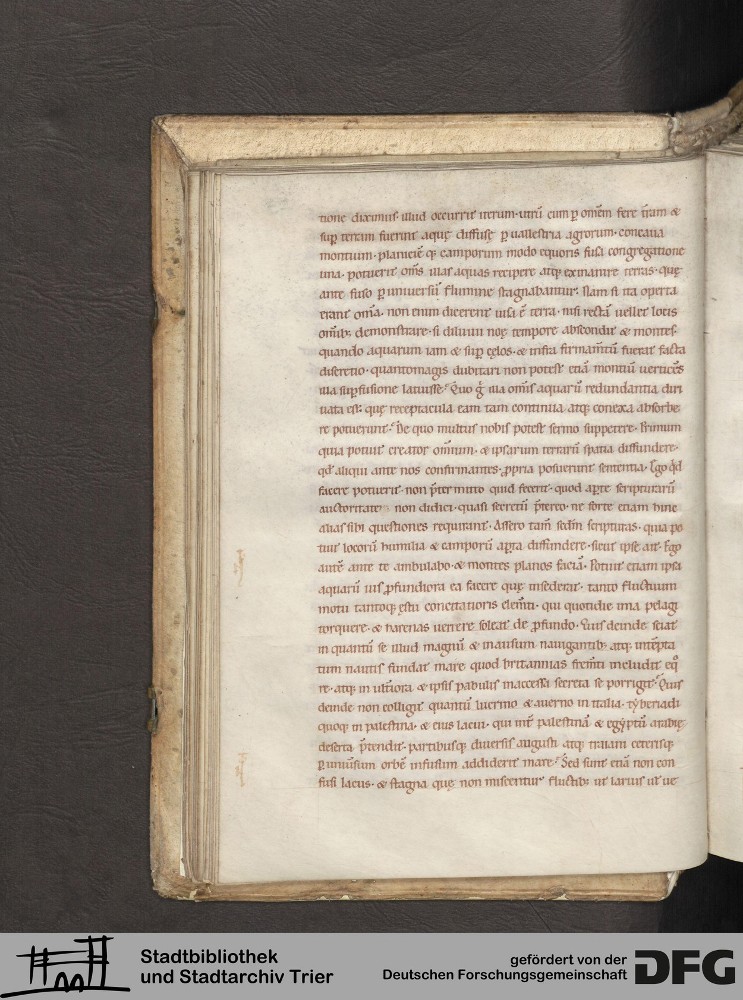 tione diximus· illud occurrit iterum· utrū cum ꝑ omēm fere t̄ram &
suꝑ terram fuerint aquę diffusę ꝑ uallestria agrorum· concaua
montium· planiciē qꝫ camporum modo equoris fusa congregatione
una· potuerit om̄s illas aquas recipere atqꝫ exinanire terras· quę
ante fuso ꝑ uniuersū flumine stagnabantur; Nam si ita operta
erant om̄a· non enim diceret uisa ē terra· nisi rectā uellet locis
om̄ibꝫ demonstrare· si diluuii noę tempore abscondit & montes
quando aquarum iam & suꝑ cęlos· & infra firmam̄tū fuerat facta
discretio· quantomagis dubitari non potest etiā montiū uertices
illa suꝑfusione latuisse? Quo g̊ illa omis aquarū redundantia diri
uata est; quę receptacula eam tam continua atqꝫ conexa absorbe
re potuerunt? De quo multus nobis potest sermo suppetere· Primum
quia potuit creator om̄ium· & ipsarum terrarū spatia diffundere·
qd̄ aliqui ante nos confirmantes· ꝓpria posuerunt sententia· Ego qđ
facere potuerit· non p̄termitto quid fecerit· quod aꝑte scripturarū
auctoritate non didici· quasi secretū p̄tereo· ne forte etiam hinc
alias sibi questiones requirant· Assero tam̄ sedm̄ scripturas· quia po
tuit locorū humilia & camporū aꝑta diffundere· sicut ipse ait· Ego
autē ante te ambulabo· & montes planos faciā· Potuit etiam ipsa
aquarū uis ꝓfundiora ea facere quę insederat· tanto fluctuum
motu tantoqꝫ ęstu concitatioris elem̄ti· qui quotidie ima pelagi
torquere· & harenas uertere soleat de ꝓfundo· Quis deinde sciat
in quantū se illud magnū & inausum nauigantibꝫ atqꝫ intēpta
tum nautis fundat mare quod britannias frem̄ti includit eq̊
re· atqꝫ in ult̄iora & ipsis fabulis inaccessa secreta se porrigit? Quis
deinde non colligit quantū lucrino & auerno in italia· tyberiadi
quoqꝫ in palestina· & eius lacui· qui int̄ palestinā & egyptū arabię
deserta p̄tendit· partibusqꝫ diuersis augusti atqꝫ traiani ceterisqꝫ
ꝑ uniūsum orbē infusum addiderit mare? Sed sunt etiā non con
fusi lacus· & stagna quę non miscentur fluctibꝫ ut larius ut ue
Stadtbibliothek
und Stadtarchiv Trier
gefördert von der
Deutschen Forschungsgemeinschaft
DFG